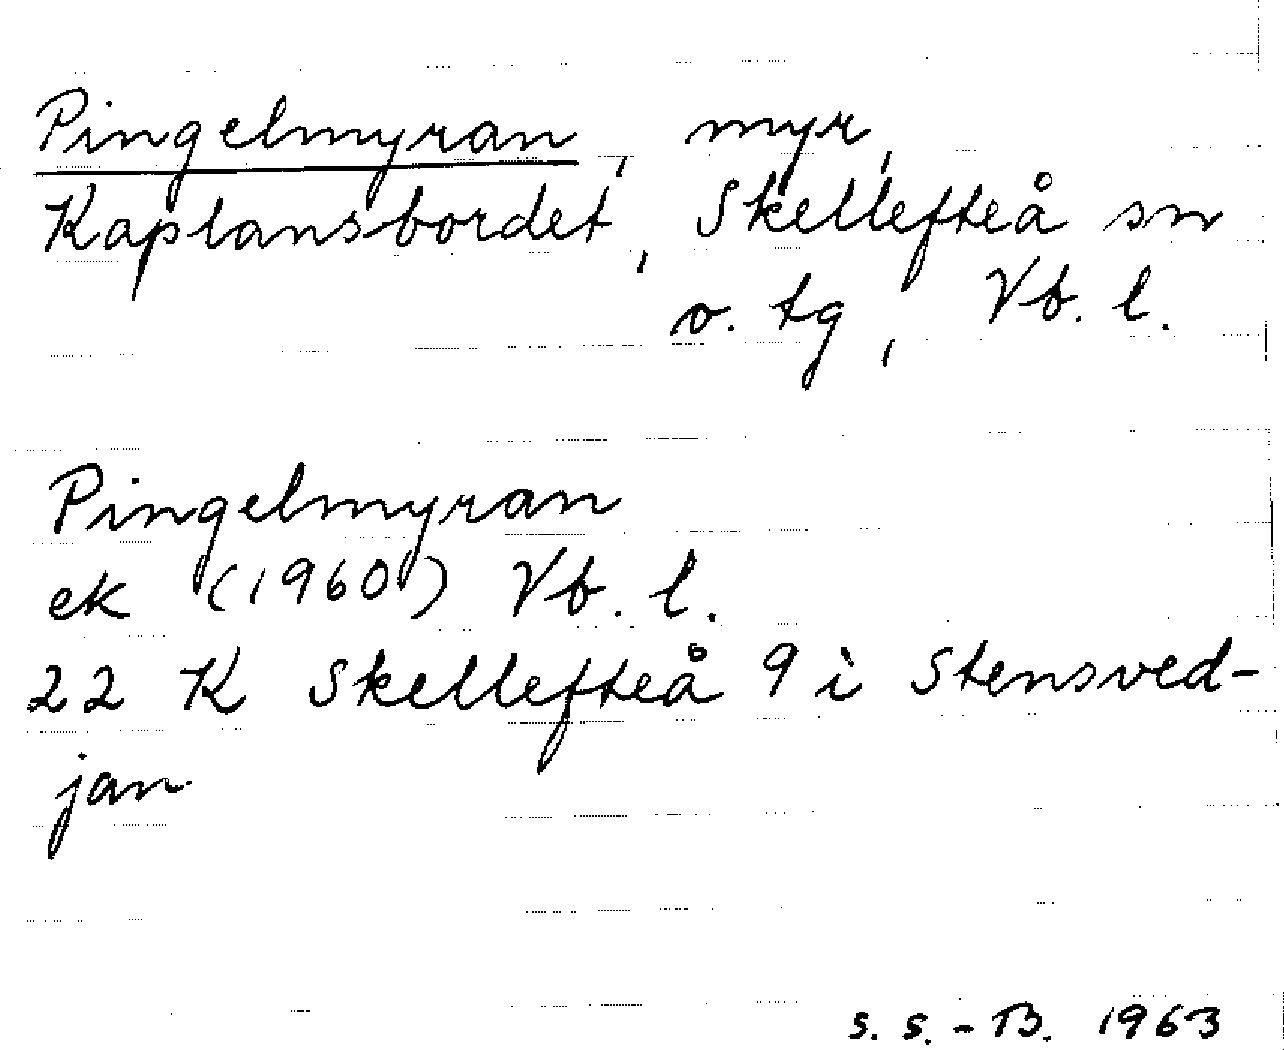 Pingelmyran, myr,
Kaplansbordet, Skellefteå sn
o. tg, Vb. l.
Pingelmyran
ek (1960) Vb. l.
22 K Skellefteå 9 i Stensved-
jan
S. S. - B. 1963